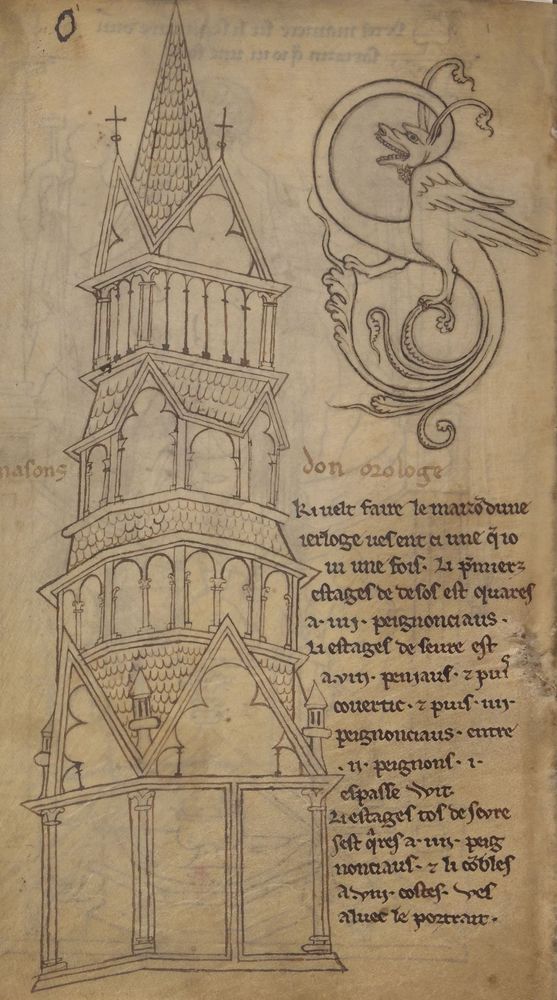 masons don orologe
Ki velt faire le maizõ dune
ierloge ves ent ci une q̃ io
vi une fois· Li p̃mierz
estages de desos est quares
a·iiii· peignonciaus·
Li estages deseure est
a·viii· peniaus· ⁊ puis
covertic· ⁊ puis·iiii·
peignonciaus· entre
·ii· peignons·i·
espasse wit·
Li estages tos deseure
sest q̃res a·iiii· peig
nonciaus· ⁊ li cõbles
a·viii· costes· ves
aluec le portrait·